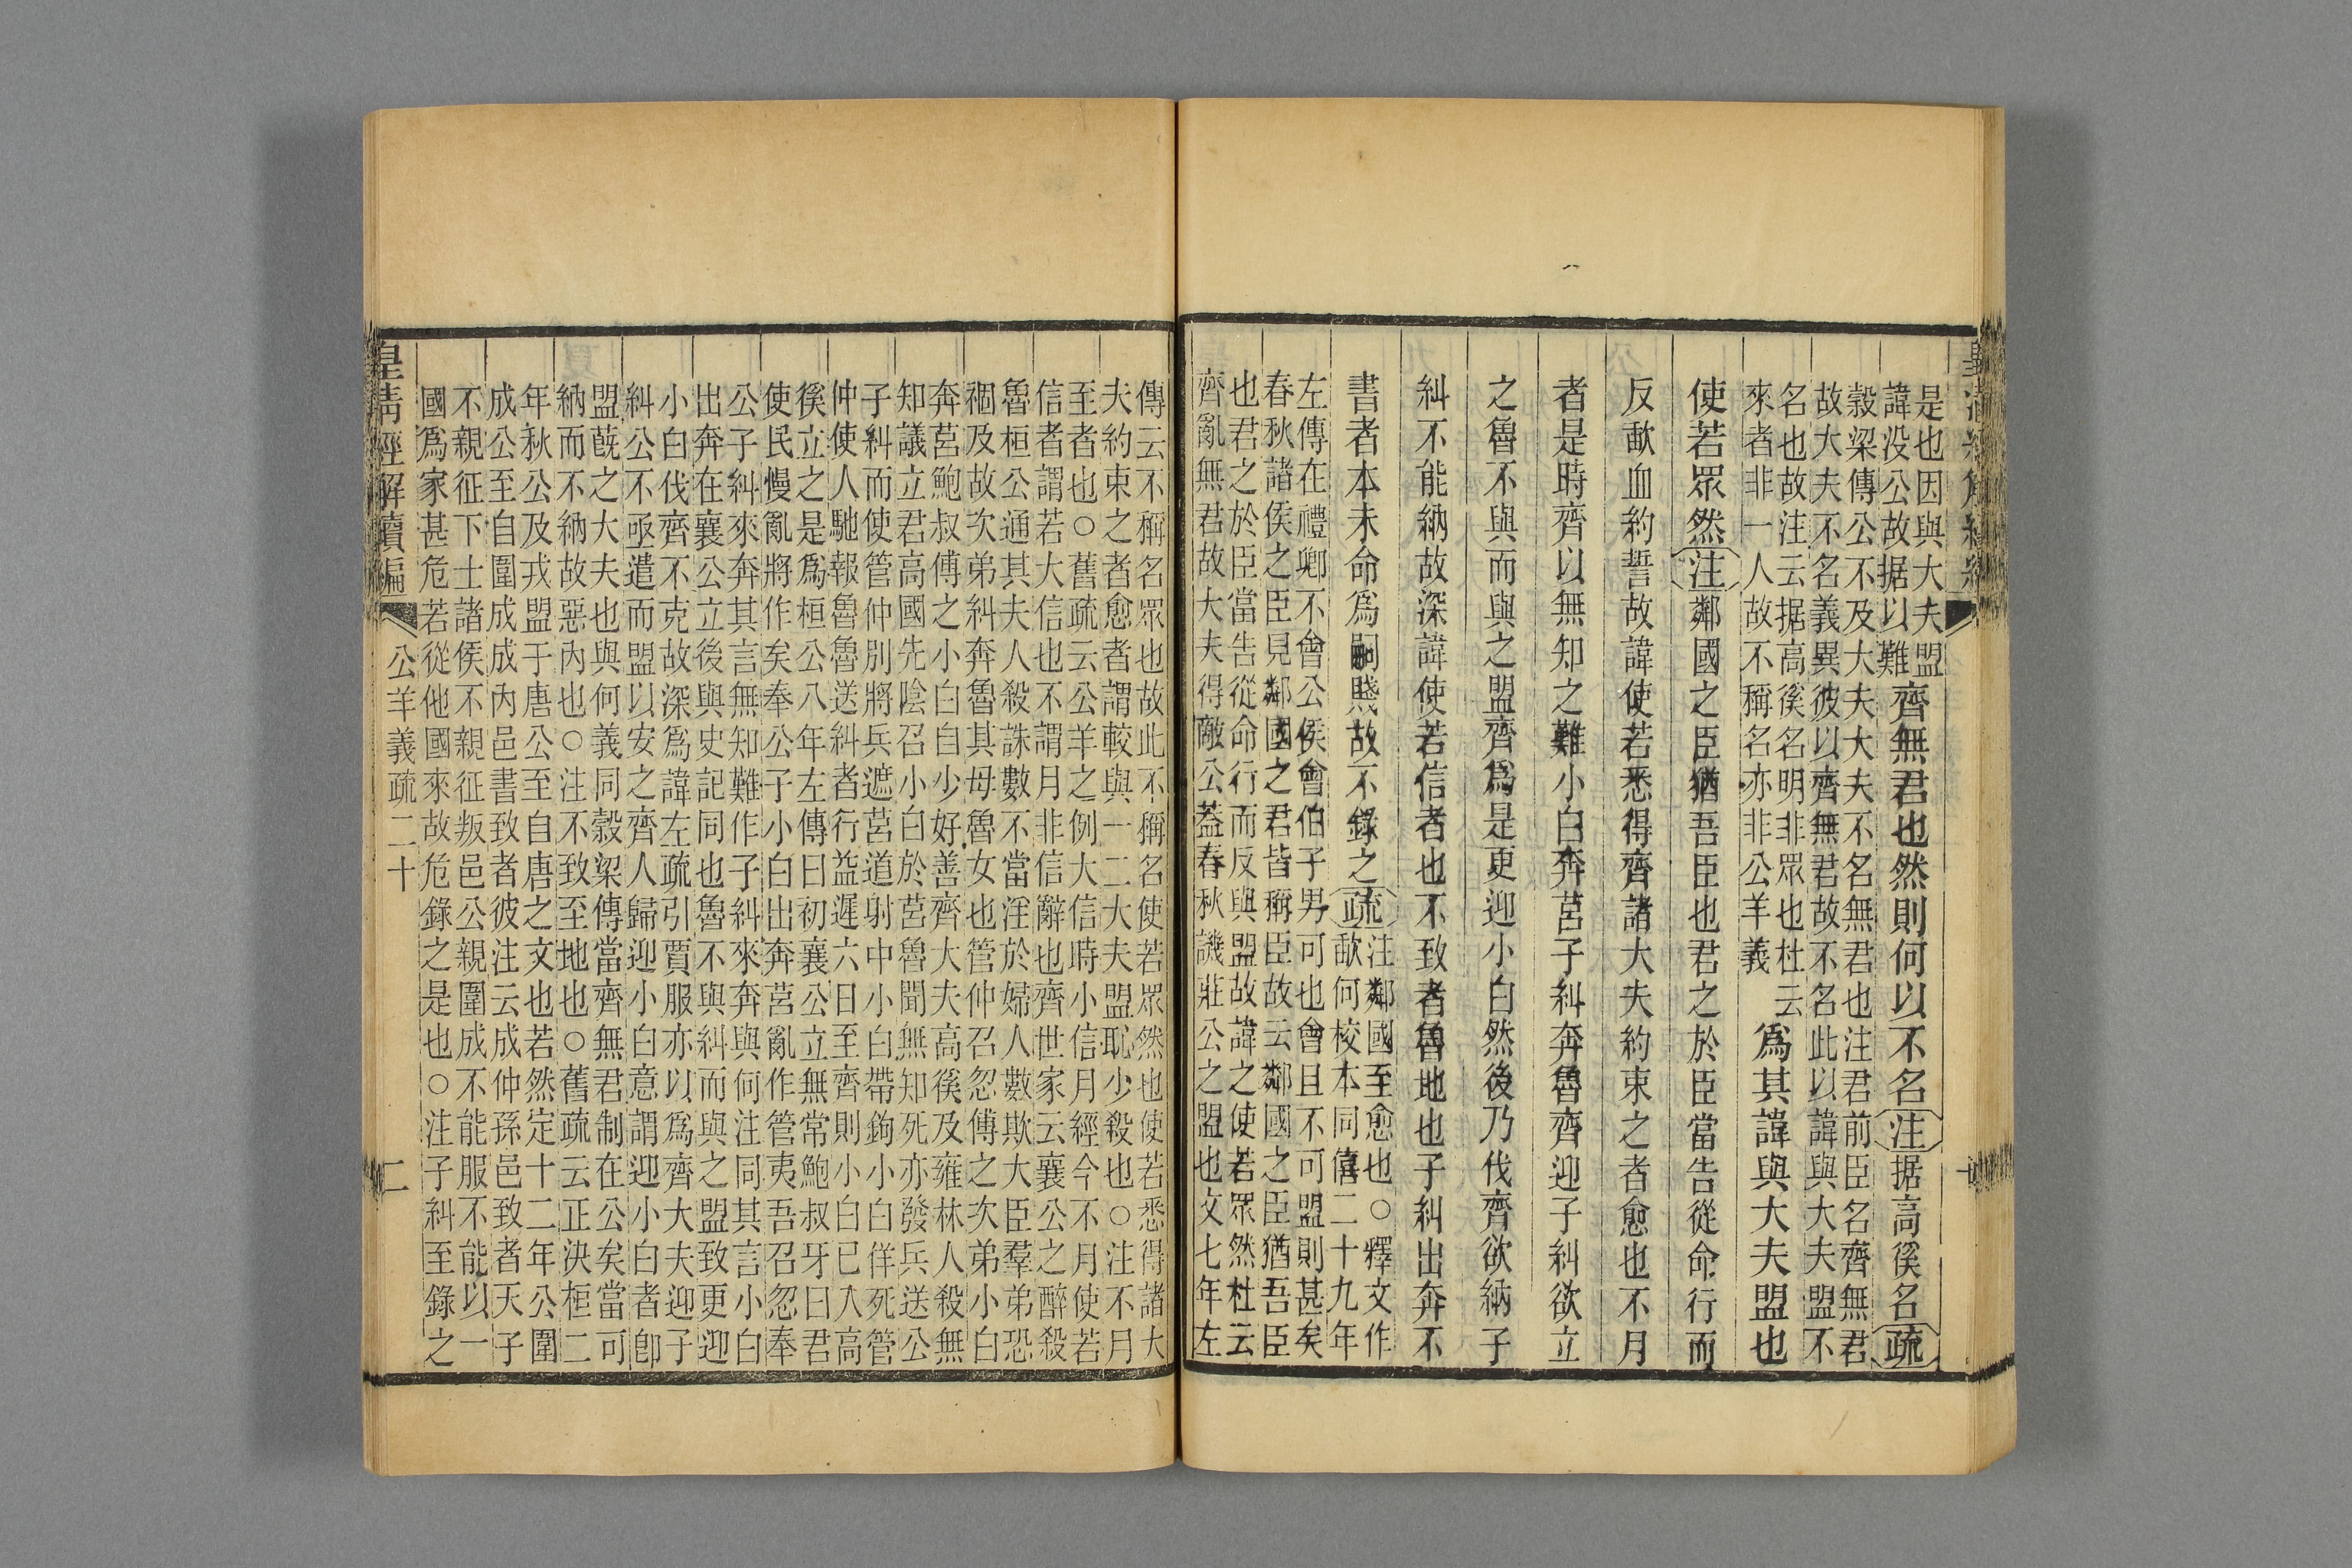 是也因與大夫盟
諱没公故据以難
齊無君也然則何以不名注据高傒名疏
穀梁傳公不及大夫大夫不名無君也注君前臣名齊無君
故大夫不名義異彼以齊無君故不名此以諱與大夫盟不
名也故注云据高傒名明非眾也杜云
來者非一人故不稱名亦非公羊義
爲其諱與大夫盟也
使若眾然注鄰國之臣猶吾臣也君之於臣當告從命行而
反歃血約誓故諱使若悉得齊諸大夫約束之者愈也不月
者是時齊以無知之難小白奔莒子糾奔魯齊迎子糾欲立
之魯不與而與之盟齊爲是更迎小白然後乃伐齊欲納子
糾不能納故深諱使若信者也不致者魯地也子糾出奔不
書者本未命爲嗣賤故不錄之疏
注鄰國至愈也○釋文作
歃何校本同僖二十九年
左傳在禮卿不會公侯會伯子男可也會且不可盟則甚矣
春秋諸侯之臣見鄰國之君皆稱臣故云鄰國之臣猶吾臣
也君之於臣當告從命行而反與盟故諱之使若眾然杜云
齊亂無君故大夫得敵公蓋春秋譏莊公之盟也文七年左
傳云不稱名眾也故此不稱名使若眾然也使若悉得諸大
夫約束之者愈者謂較與一二大夫盟恥少殺也○注不月
至者也○舊疏云公羊之例大信時小信月經今不月使若
信者謂若大信也不謂月非信辭也齊世家云襄公之醉殺
魯桓公通其夫人殺誅數不當淫於婦人數欺大臣羣弟恐
禍及故次弟糾奔魯其母魯女也管仲召忽傅之次弟小白
奔莒鮑叔傅之小白自少好善齊大夫高傒及雍林人殺無
知議立君高國先陰召小白於莒魯聞無知死亦發兵送公
子糾而使管仲別將兵遮莒道射中小白帶鉤小白佯死管
仲使人馳報魯魯送糾者行益遲六日至齊則小白已入高
傒立之是爲桓公八年左傳曰初襄公立無常鮑叔牙曰君
使民慢亂將作矣奉公子小白出奔莒亂作管夷吾召忽奉
公子糾來奔其言無知難作子糾來奔與何注同其言小白
出奔在襄公立後與史記同也魯不與糾而與之盟致更迎
小白伐齊不克故深爲諱左疏引賈服亦以爲齊大夫迎子
糾公不亟遣而盟以安之齊人歸迎小白意謂迎小白者卽
盟蔇之大夫也與何義同穀梁傳當齊無君制在公矣當可
納而不納故惡內也○注不致至地也○舊疏云正決桓二
年秋公及戎盟于唐公至自唐之文也若然定十二年公圍
成公至自圍成成內邑書致者彼注云成仲孫邑致者天子
不親征下士諸侯不親征叛邑公親圍成不能服不能以一
國爲家甚危若從他國來故危錄之是也○注子糾至錄之
皇清經解續編
公羊義疏二十
二